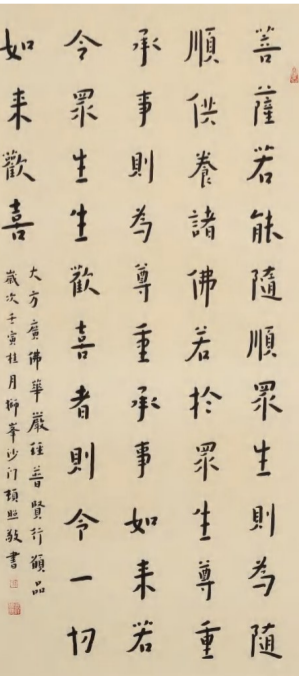 菩薩若能隨順眾生則為隨
順供養諸佛若於眾生尊重
承事則為尊重承事如来若
令眾生生歡喜者則令一切
如来歡喜
大方廣佛華嚴經普賢行願品
歲次壬寅桂月獅峯沙门頓照敬書